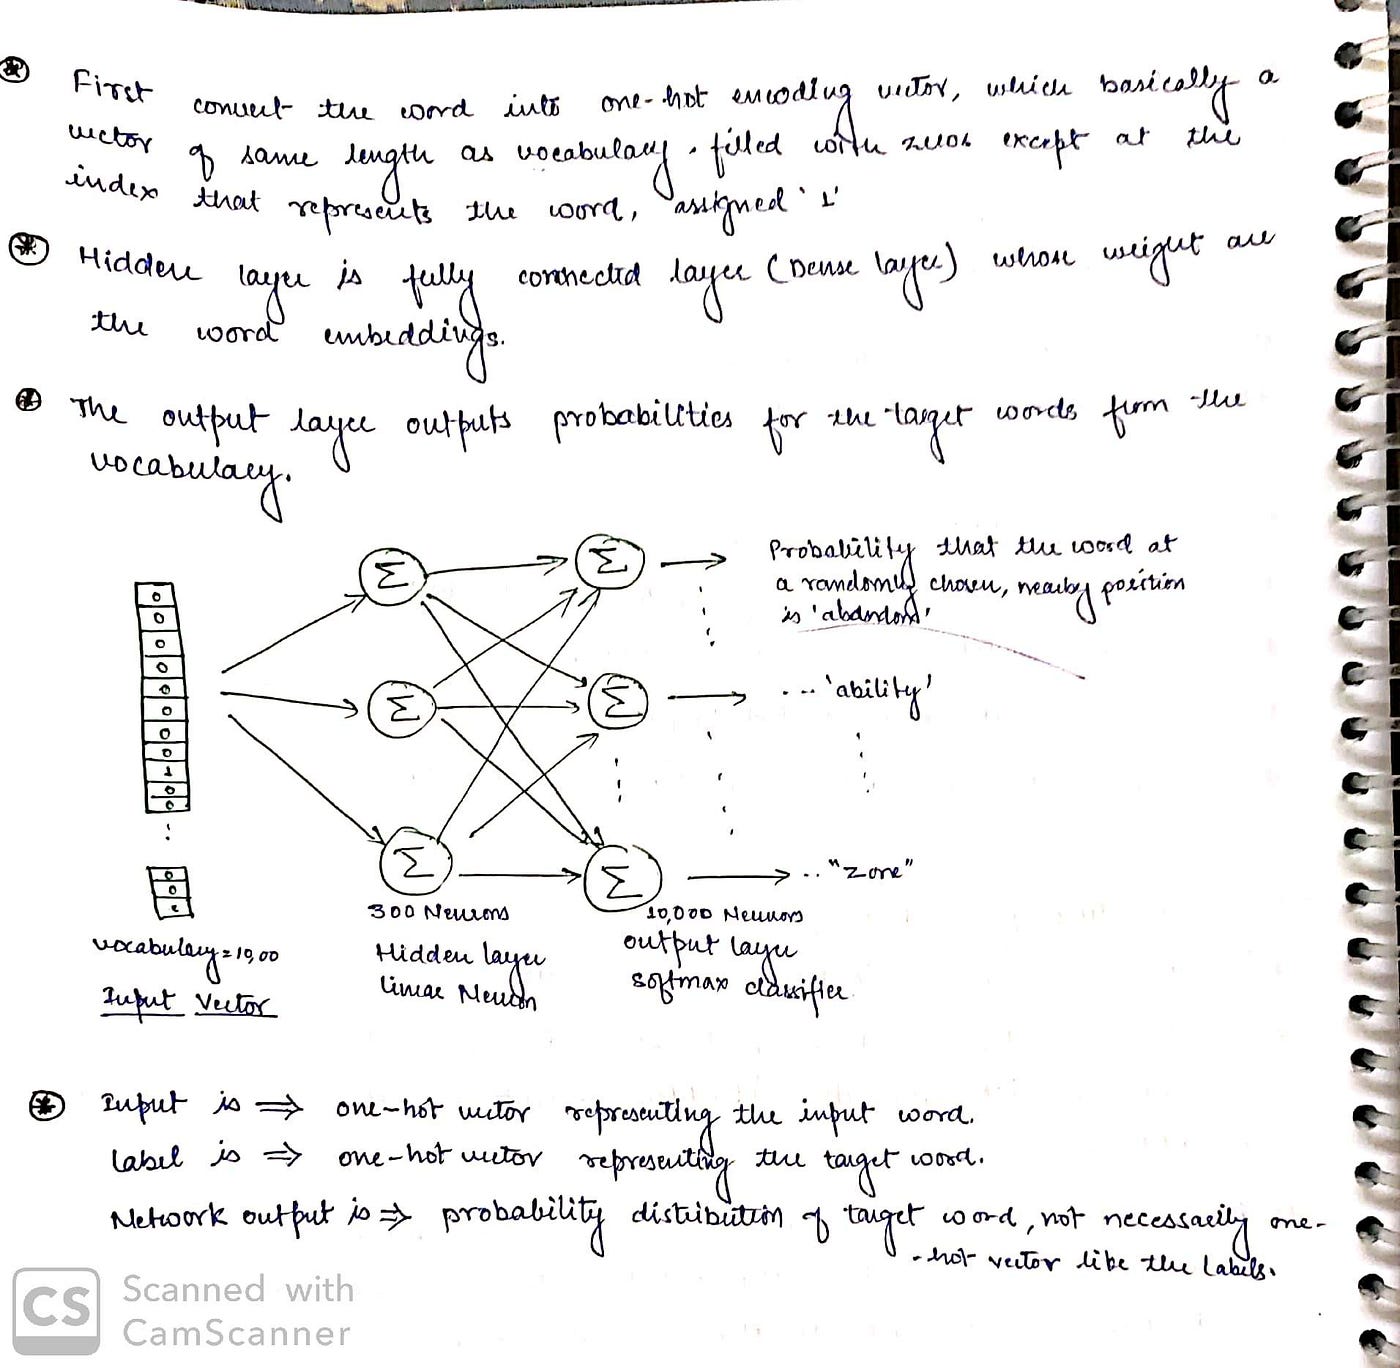 First convert the word into one-hot encoding vector, which basically a
vector of same length as vocabulary. filled with zeros except at the
index that represents the word, assigned '1'
Hidden layer is fully connected layer (Dense layer) whose weight are
the word embeddings.
The output layer outputs probabilities for the target words from the
vocabulary.
Σ
Σ
Probability that the word at
a randomly chosen, nearby position
is 'abandon'
0
0
0
0
0
0
0
0
1
0
0
Σ
Σ
... 'ability'
Σ
Σ
.. "zone"
0
0
300 Neurons
10,000 Neurons
vocabulary = 10,00
Hidden layer
output layer
Input Vector
Linear Neuron
softmax classifier
Input is ⇒ one-hot vector representing the input word.
Label is ⇒ one-hot vector representing the target word.
Network output is ⇒ probability distribution of target word, not necessarily one-
-hot vector like the labels.
CS
Scanned with
CamScanner